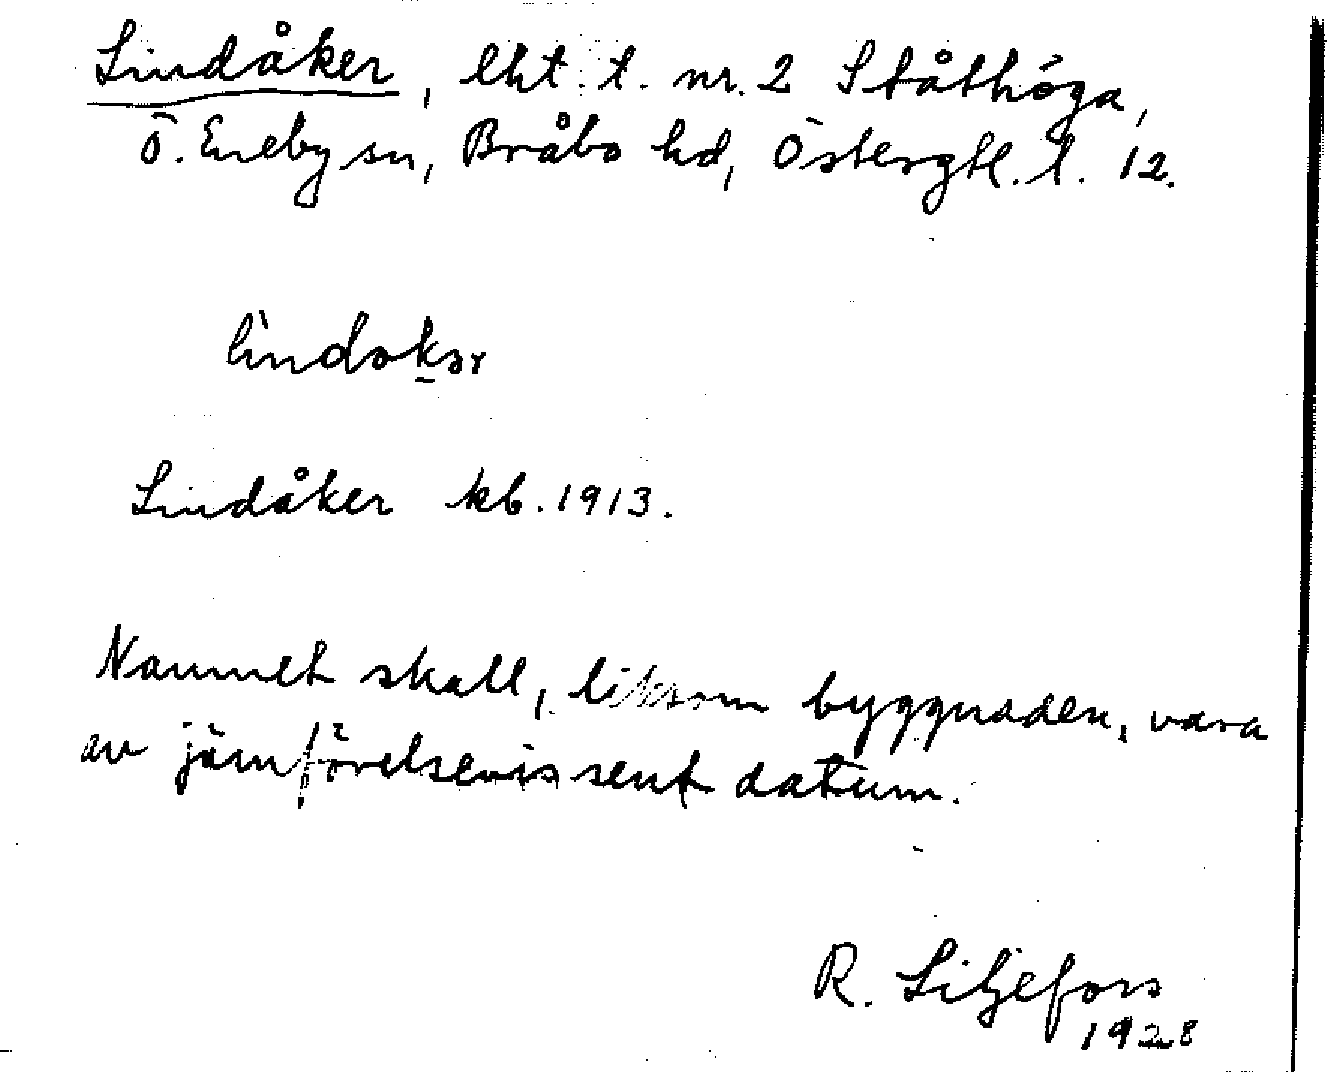 Lindåker, lht. t. nr. 2 Ståthöga,
Ö. Eneby sn, Bråbo hd, Östergtl. l. 12.
lìndokər
Lindåker kb. 1913.
Namnet skall, liksom byggnaden, vara
av jämförelsevis sent datum.
R. Liljefors
1928